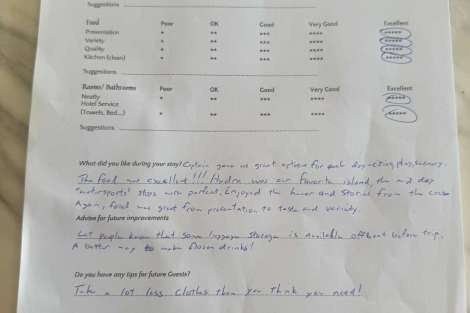 Suggestions
Food Poor OK Good Very Good Excellent
Presentation * ** *** **** *****
Variety * ** *** **** *****
Quality * ** *** **** *****
Kitchen (clean) * ** *** **** *****
Suggestions
Rooms/ Bathrooms Poor OK Good Very Good Excellent
Neatly * ** *** **** *****
Hotel Service
(Towels, Bed...) * ** *** **** *****
Suggestions
What did you like during your stay? Captain gave us great options for each day - cities, play, scenery.
The food was excellent!!! Hydra was our favorite island, the mid day
"watersports" stops were perfect. Enjoyed the humor and stories from the crew
Again, food was great from presentation to taste and variety.
Advise for future improvements
Let people know that some luggage storage is available offboat before trip.
A better way to make frozen drinks!
Do you have any tips for future Guests?
Take a lot less clothes than you think you need!